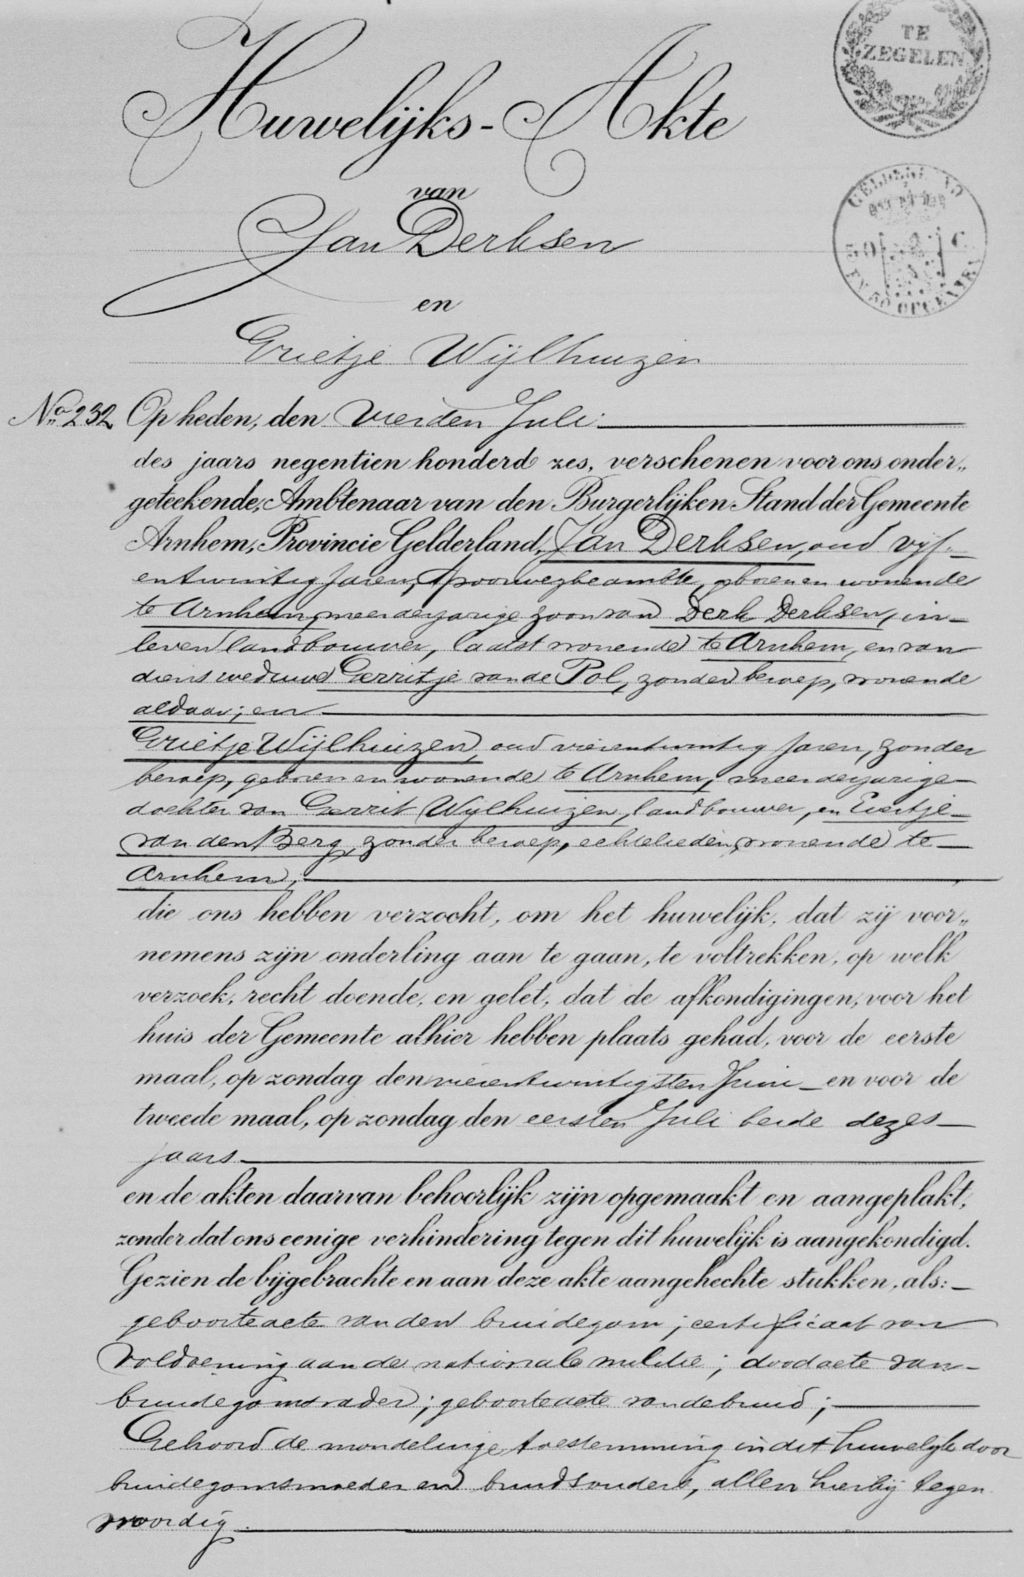 TE
ZEGELEN
Huwelijks-Akte
van
GELDERLAND
Jan Derksen
50 C
EN 50 OPCENTEN
en
Grietje Wijlhuizen
No. 232 Op heden, den vierden Juli
des jaars negentien honderd zes, verschenen voor ons onder„
geteekende, Ambtenaar van den Burgerlijken Stand der Gemeente
Arnhem, Provincie Gelderland, Jan Derksen, oud vijf-
entwintig Jaren, Spoorwegbeambte, geboren en wonende
te Arnhem, meerderjarige zoon van Derk Derksen, in-
leven landbouwer, laatst wonende te Arnhem, en van
diens weduwe Gerritje van de Pol, zonder beroep, wonende
aldaar; en
Grietje Wijlhuizen, oud vierentwintig Jaren, zonder
beroep, geboren en wonende te Arnhem, meerderjarige
dochter van Gerrit Wijlhuizen, landbouwer, en Evertje
van den Berg, zonder beroep, echtelieden, wonende te
Arnhem;
die ons hebben verzocht, om het huwelijk, dat zij voor„
nemens zijn onderling aan te gaan, te voltrekken, op welk
verzoek, recht doende, en gelet, dat de afkondigingen, voor het
huis der Gemeente alhier hebben plaats gehad, voor de eerste
maal, op zondag den vierentwintigsten Juni en voor de
tweede maal, op zondag den eersten Juli beide dezes
jaars
en de akten daarvan behoorlijk zijn opgemaakt en aangeplakt,
zonder dat ons eenige verhindering tegen dit huwelijk is aangekondigd.
Gezien de bijgebrachte en aan deze akte aangehechte stukken, als:
geboorteacte van den bruidegom; certificaat van
voldoening aan de nationale militie; doodacte van
bruidegomsvader; geboorteacte van de bruid;
Gehoord de mondelinge toestemming in dit huwelijk door
bruidegomsmoeder en bruidsouders, allen hierbij tegen
woordig.